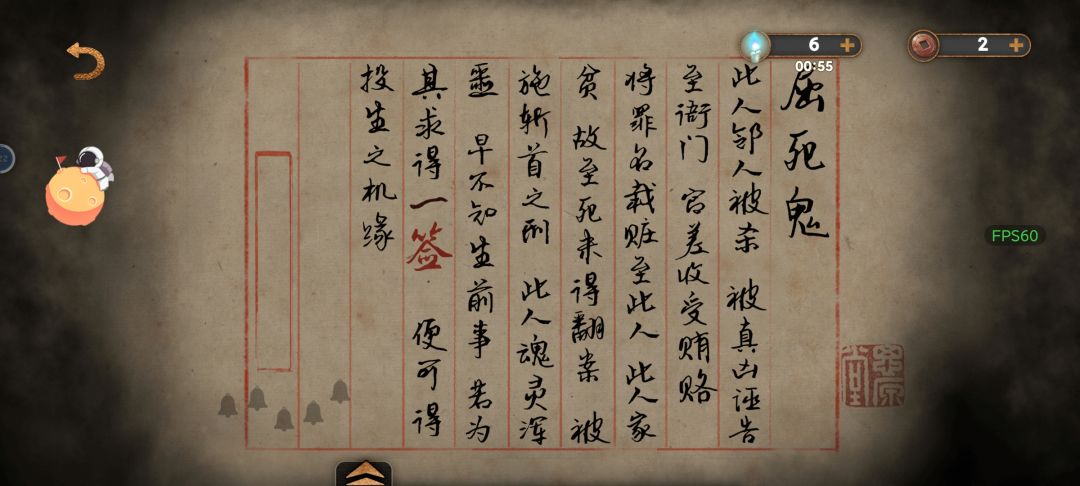 6
00:55
2
屈死鬼
此人邻人被杀 被真凶诬告
至衙门 官差收受贿赂
将罪名载赃至此人 此人家
贫 故至死未得翻案 被
施斩首之刑 此人魂灵浑
噩 早不知生前事 若为
其求得一签 便可得
投生之机缘
FPS60